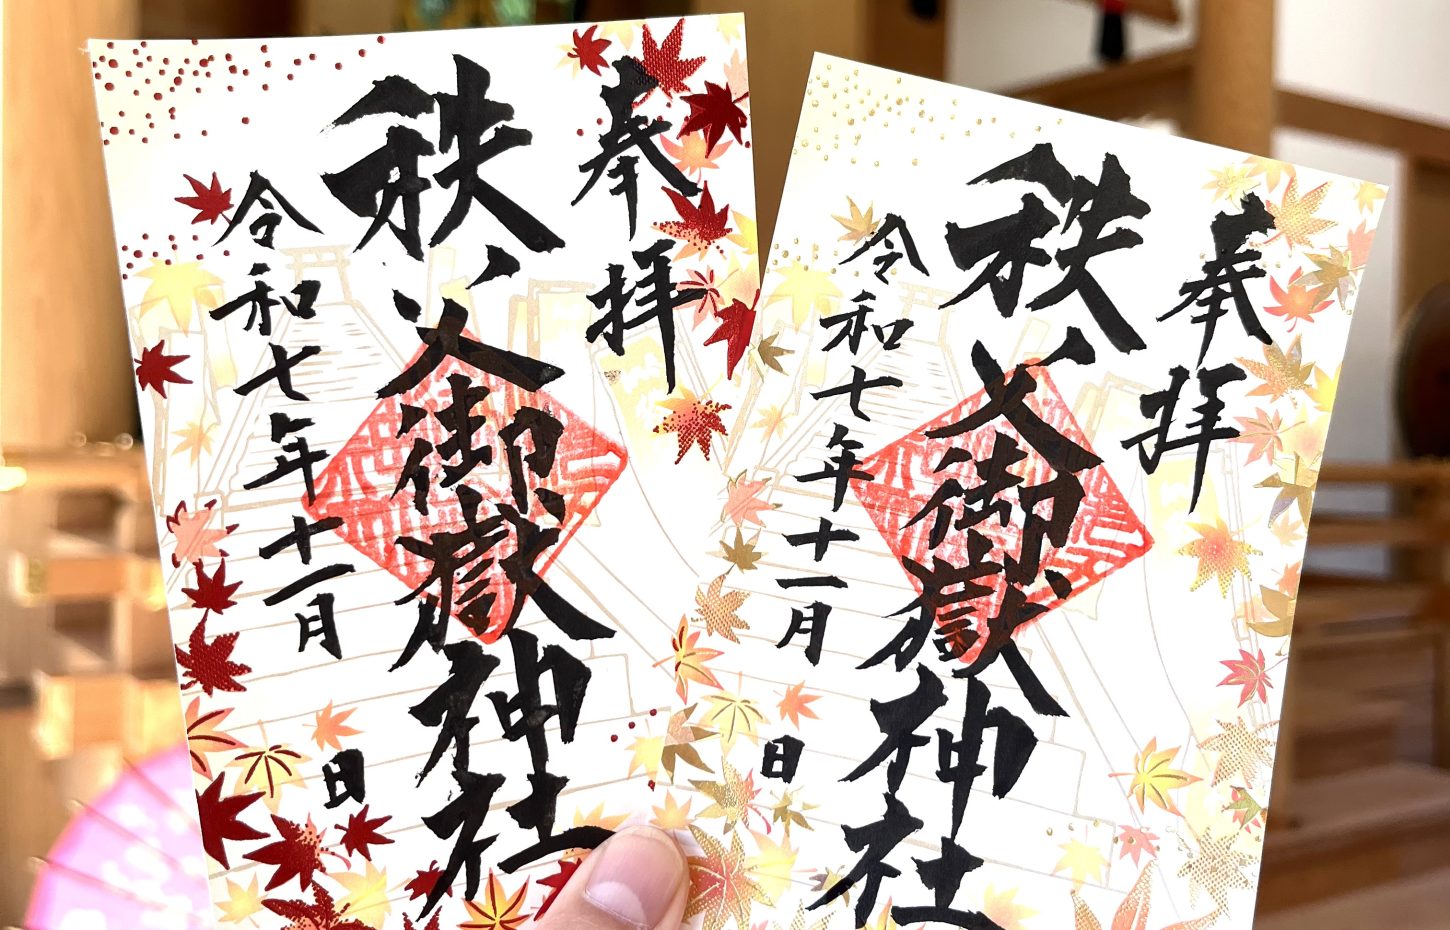 奉拝
秩父御嶽神社
令和七年十一月 日
奉拝
秩父御嶽神社
令和七年十一月 日